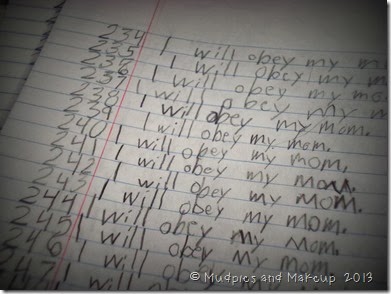 234 I will obey my m
235 I will obey my m
236 I will obey my mo
237 I will obey my m
238 I will obey my mom.
239 I will obey my mom.
240 I will obey my mom.
241 I will obey my mom.
242 I will obey my mom.
243 I will obey my mom.
244 I will obey my mom.
245 I will obey my mom.
246 I will obey my mom.
247 I
© Mudpies and Makeup 2013